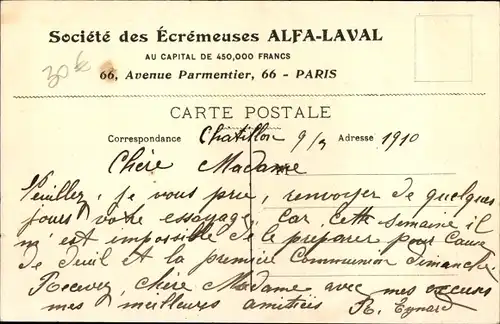 Société des Écrémeuses ALFA-LAVAL
AU CAPITAL DE 450,000 FRANCS
66, Avenue Parmentier, 66 - PARIS
CARTE POSTALE
Correspondance Chatillon 9/5 Adresse 1910
Chère Madame
Veuillez, je vous prie, renvoyer de quelques
jours votre essayage, Car cette semaine il
m'est impossible de le préparer pour Cause
de deuil et la première Communion Dimanche
Recevez, chère Madame avec mes excuses
mes meilleures amitiés R. Eynard